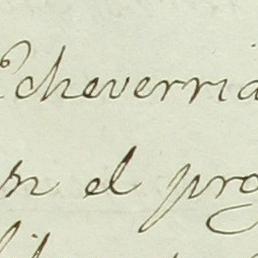 Echeverria
en el pro